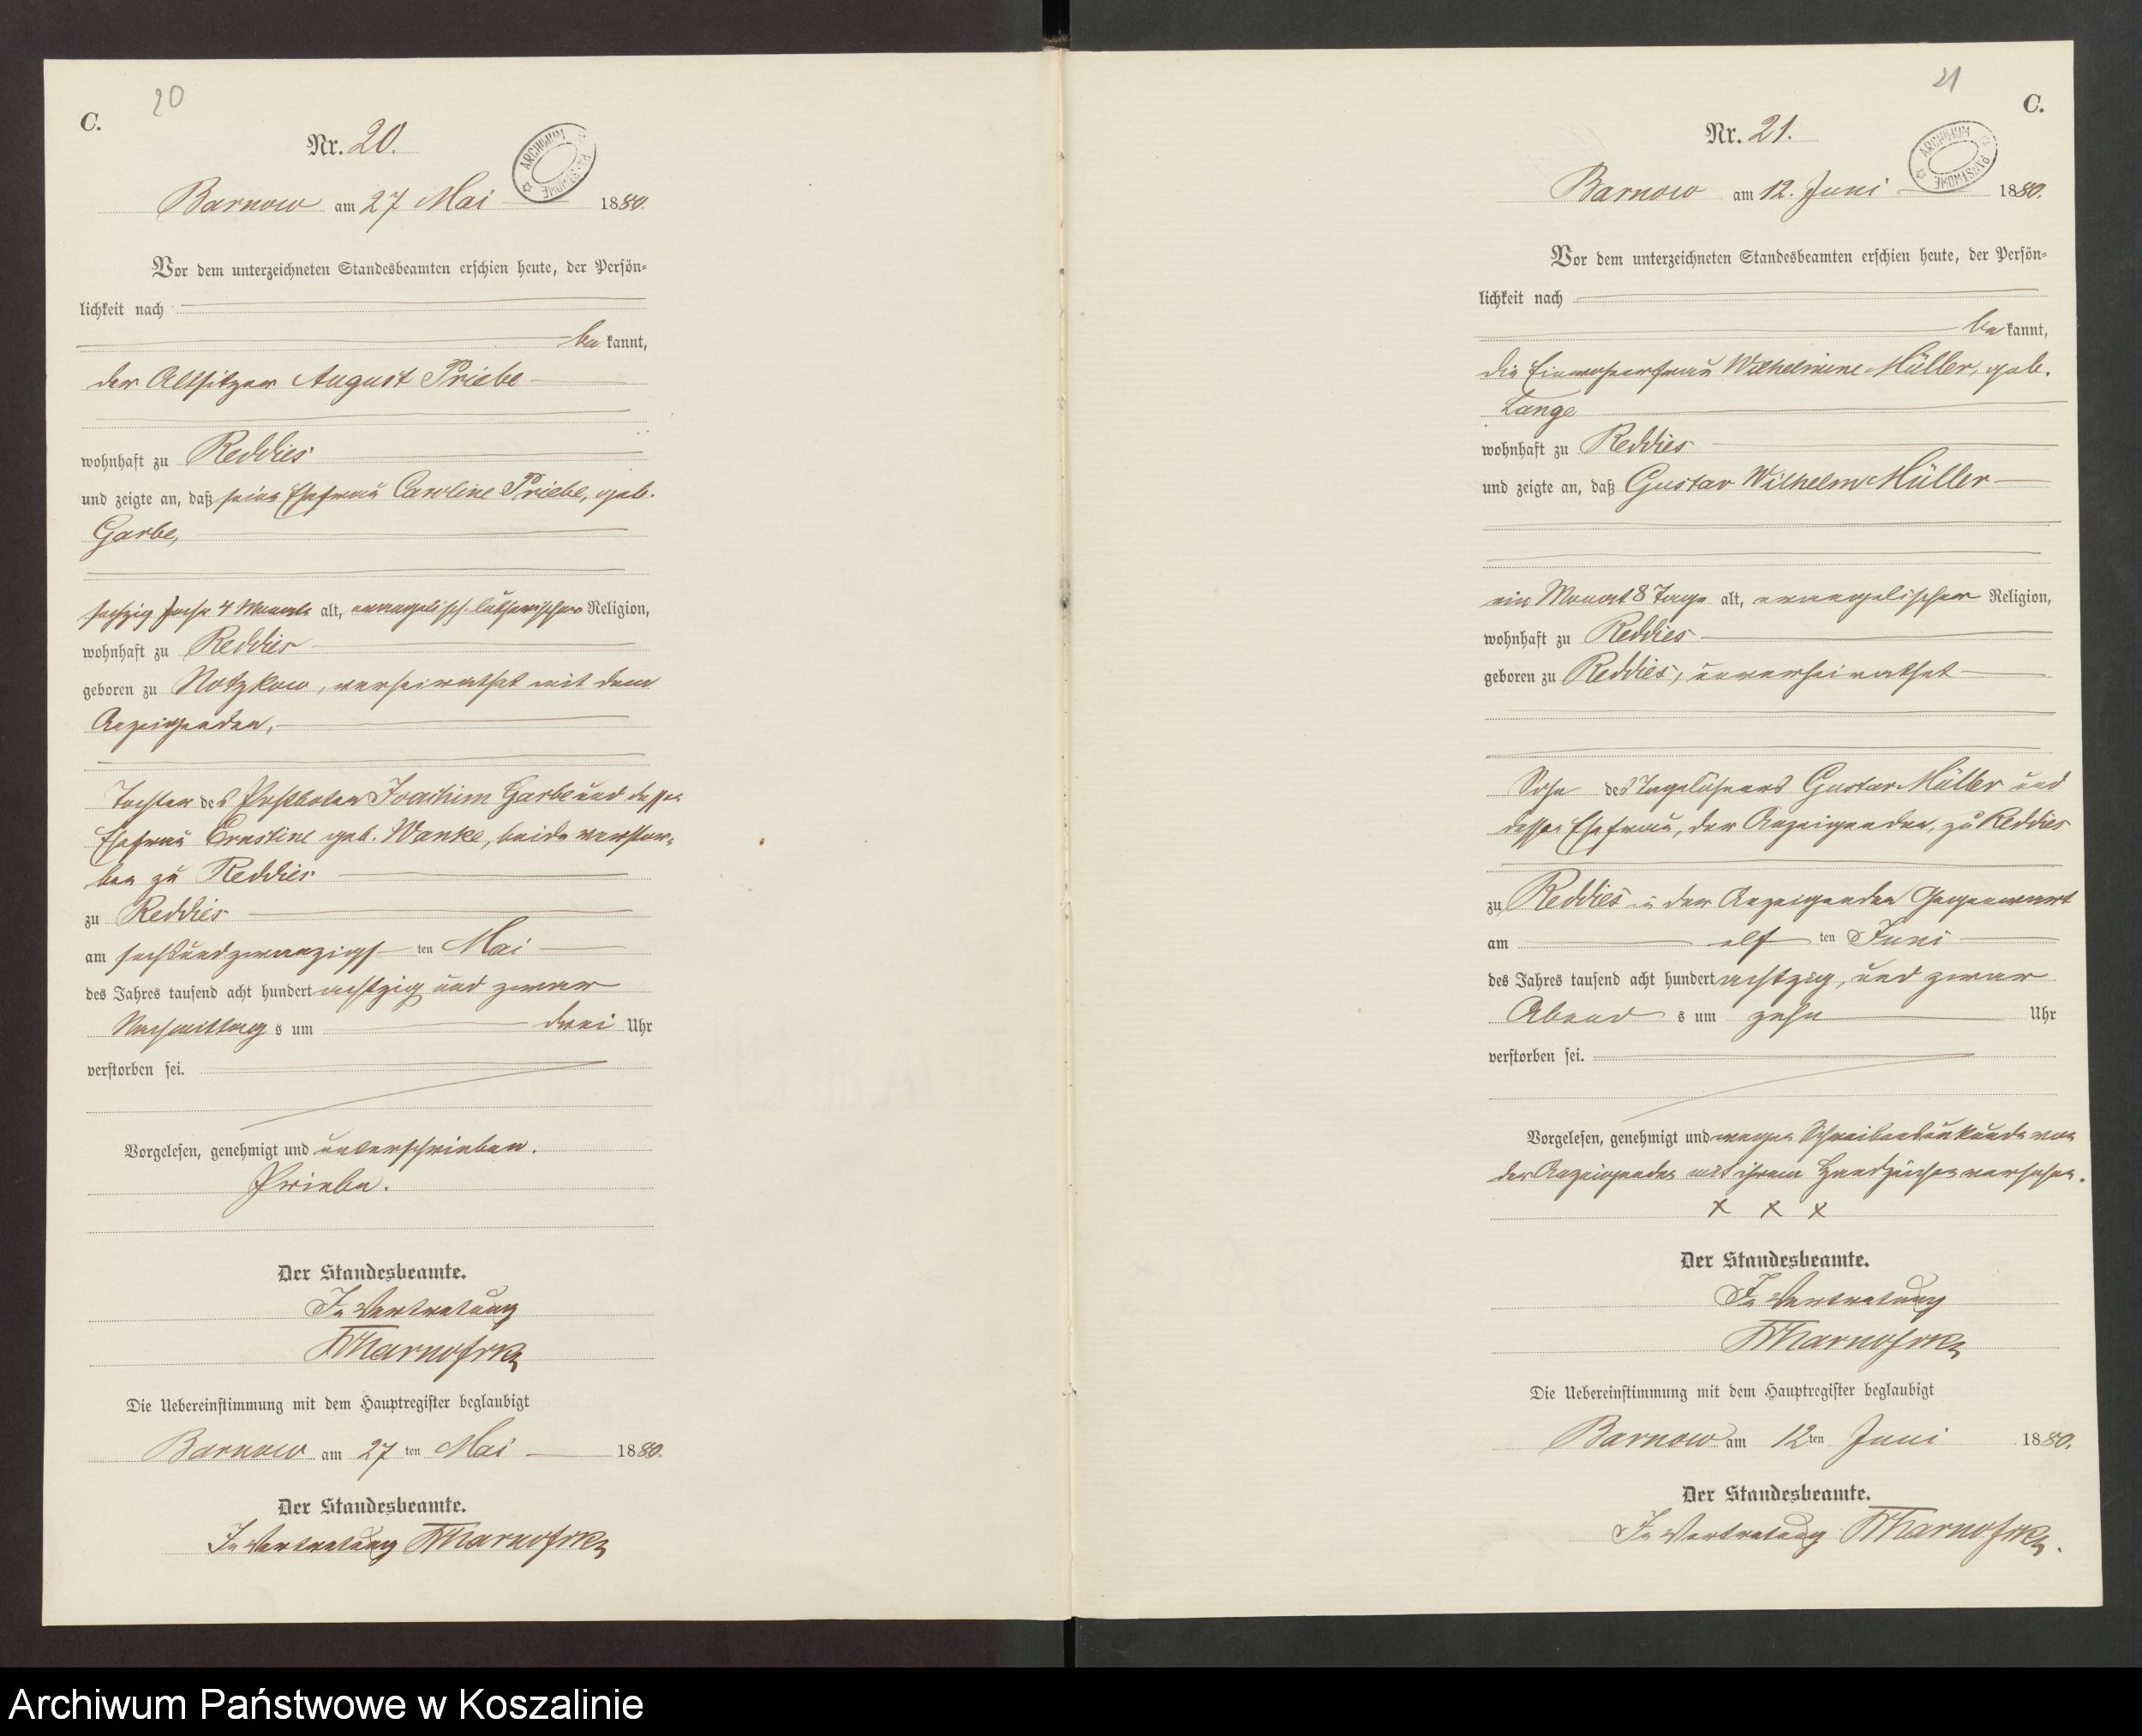 20
C.
Nr. 20.
ARCHIWUM PAŃSTWOWE
Barnow am 27 Mai 1880.
Vor dem unterzeichneten Standesbeamten erschien heute, der Persön-
lichkeit nach
be kannt,
der Altsitzer August Priebe
wohnhaft zu Reddies
und zeigte an, daß seine Ehefrau Caroline Priebe, geb.
Garbe,
sechzig Jahr 4 Monate alt, evangelisch-lutherischer Religion,
wohnhaft zu Reddies
geboren zu Notzkow, verheirathet mit dem
Anzeigenden,
Tochter des Postboten Joachim Garbe und dessen
Ehefrau Ernstine geb. Wanke, beide verstor-
ben zu Reddies
zu Reddies
am sechsundzwanzigs ten Mai
des Jahres tausend acht hundert achtzig und zwar
Nachmittag s um drei Uhr
verstorben sei.
Vorgelesen, genehmigt und unterschrieben.
Priebe.
Der Standesbeamte.
In Vertretung
Die Uebereinstimmung mit dem Hauptregister beglaubigt
Barnow am 27 ten Mai 1880.
Der Standesbeamte.
In Vertretung
21
C.
Nr. 21.
ARCHIWUM PAŃSTWOWE
Barnow am 12. Juni 1880.
Vor dem unterzeichneten Standesbeamten erschien heute, der Persön-
lichkeit nach
be kannt,
die Einwohnerfrau Wilhelmine Müller, geb.
Lange
wohnhaft zu Reddies
und zeigte an, daß Gustav Wilhelm Müller
ein Monat 8 Tage alt, evangelischer Religion,
wohnhaft zu Reddies
geboren zu Reddies, unverheirathet
Sohn des Tagelöhners Gustav Müller und
dessen Ehefrau, der Anzeigenden, zu Reddies
zu Reddies in der Anzeigenden Gegenwart
am elf ten Juni
des Jahres tausend acht hundert achtzig, und zwar
Abend s um zehn Uhr
verstorben sei.
Vorgelesen, genehmigt und wegen Schreibensunkunde von
der Anzeigenden mit ihrem Handzeichen versehen.
x x x
Der Standesbeamte.
In Vertretung
Die Uebereinstimmung mit dem Hauptregister beglaubigt
Barnow am 12 ten Juni 1880.
Der Standesbeamte.
In Vertretung
Archiwum Państwowe w Koszalinie